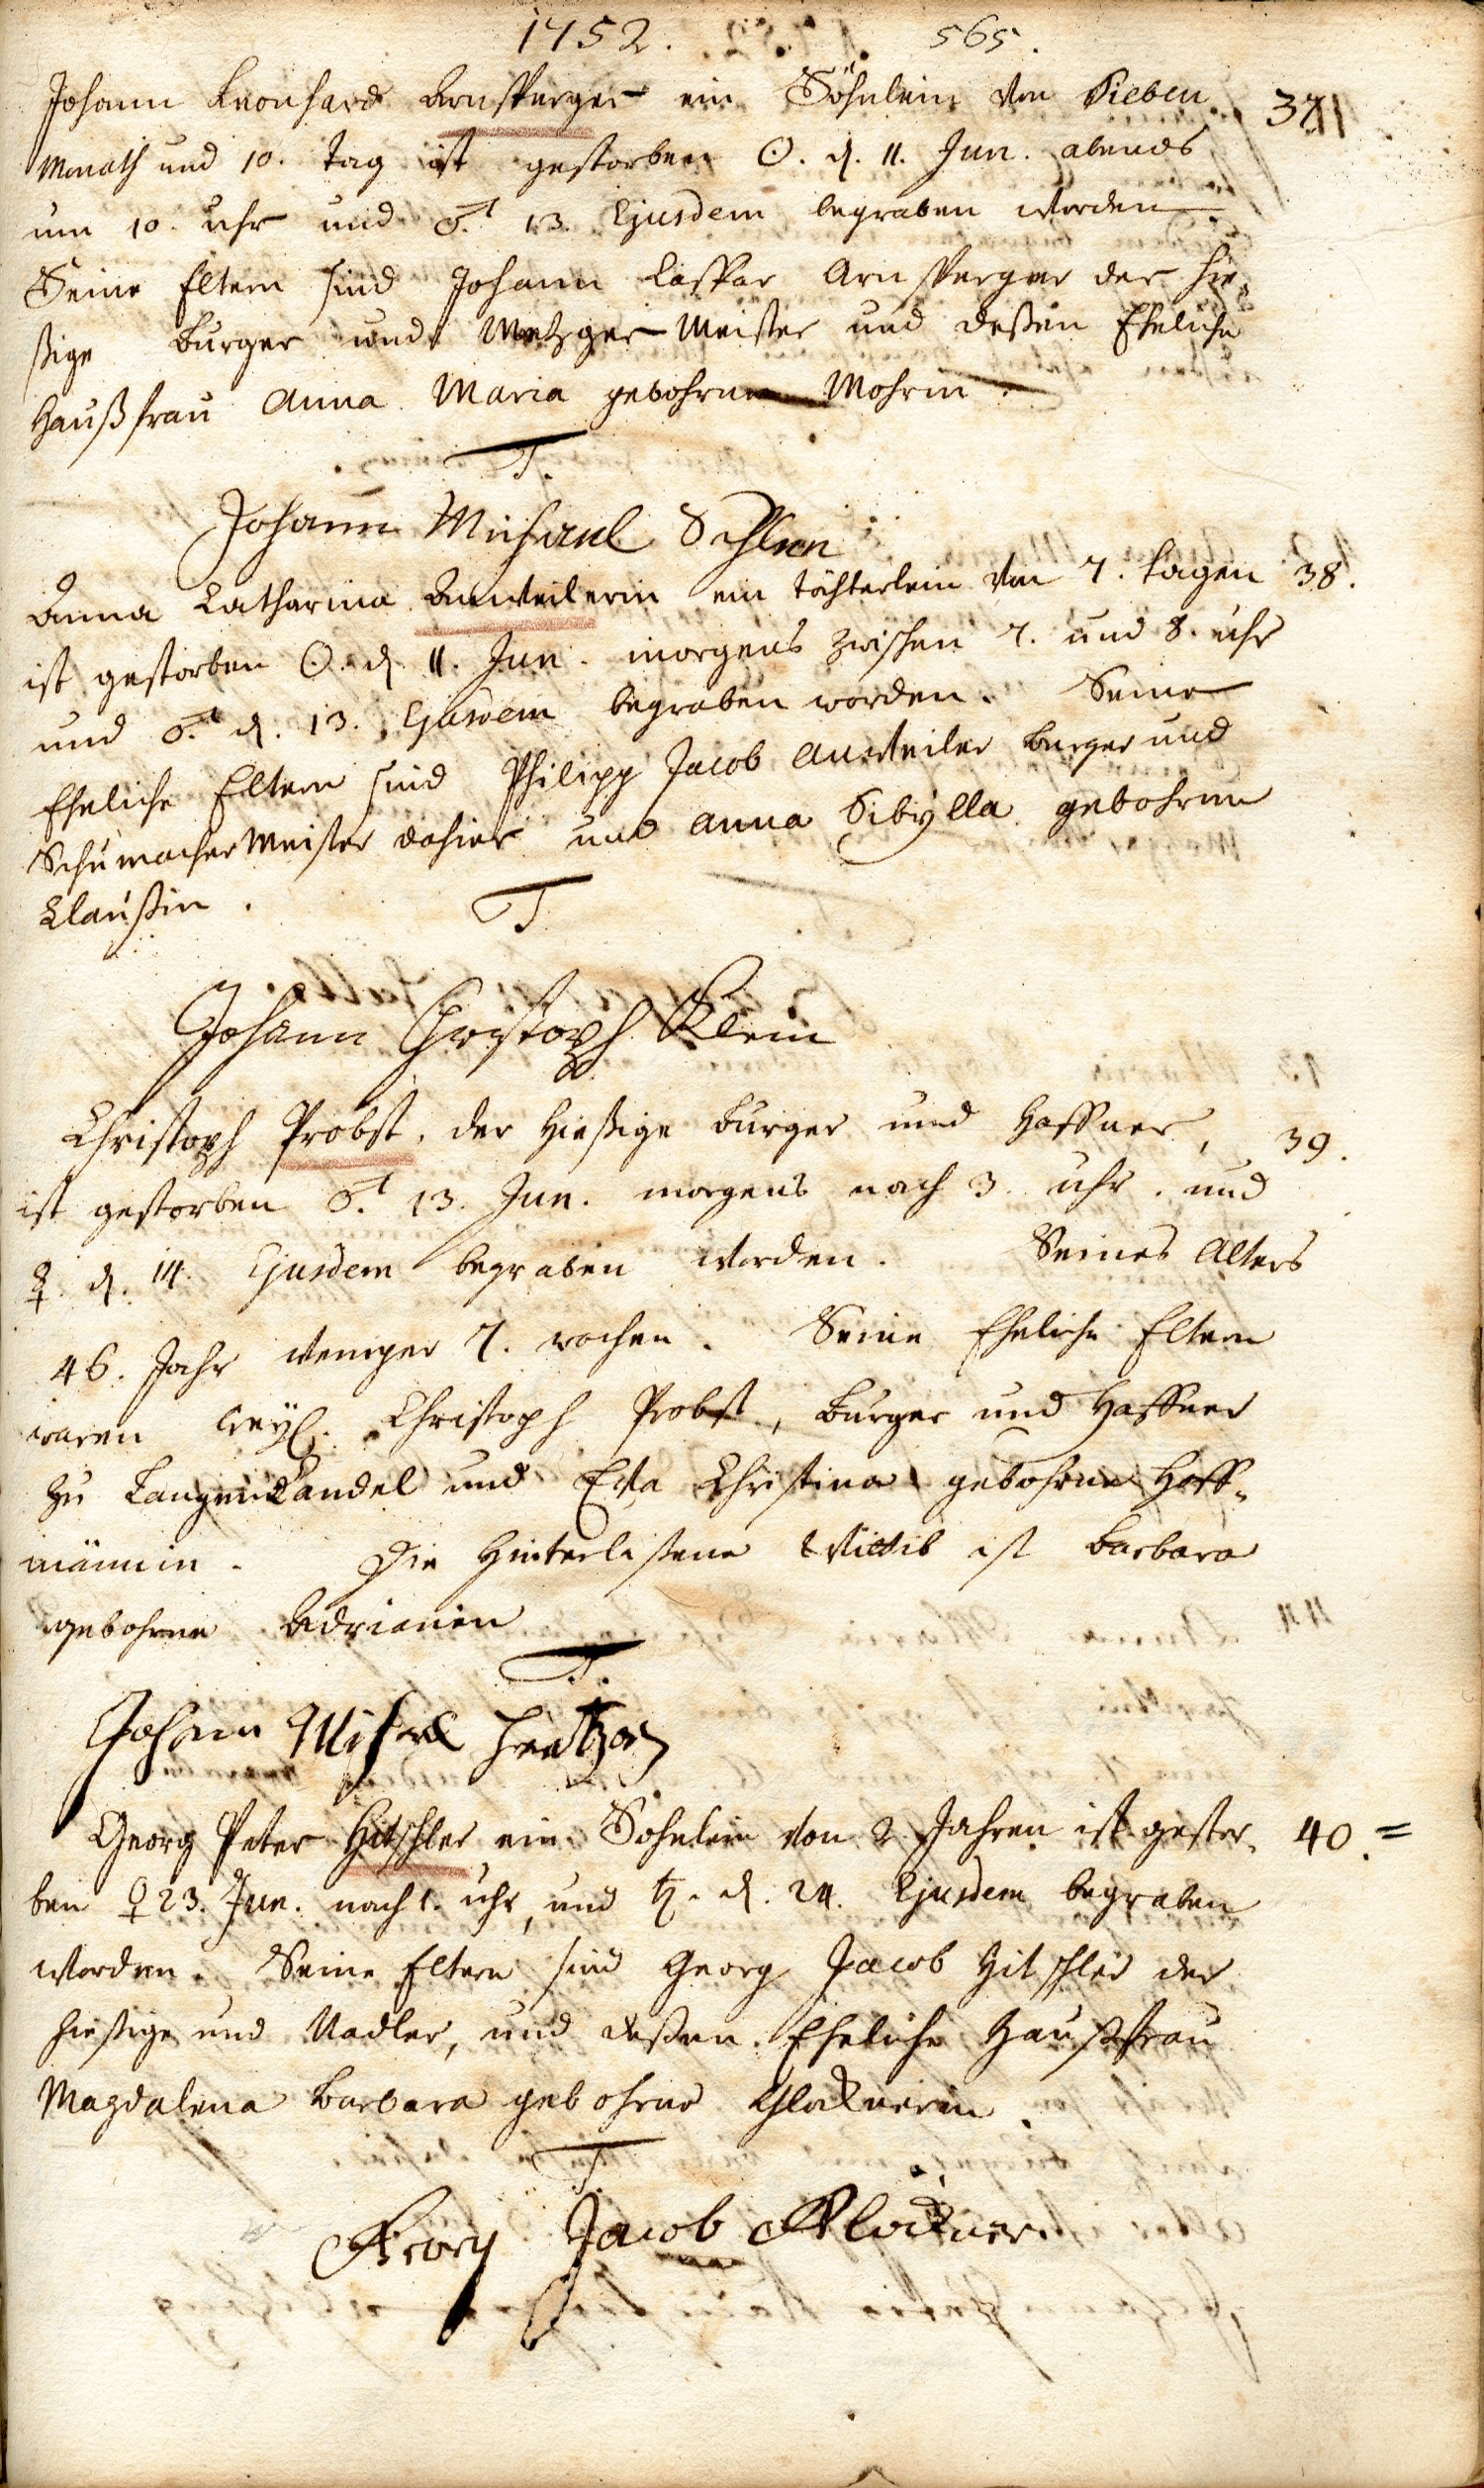 1752. 565.
Johann Leonhard Arnsperger ein Söhnlein von Sieben 37
Monath und 10. Tag ist gestorben ☉. d. 11. Jun. abends
um 10. Uhr und ♂. 13. Ejusdem begraben worden
Seine Eltern sind Johann Caspar Arnsperger der hie-
ßige Burger und Metzger Meister und deßen Eheliche
Haußfrau Anna Maria gebohrne Mohrin.
T.
Johann Michael
Anna Catharina Anweilerin ein Töchterlein von 7. Tagen 38.
ist gestorben ☉. d. 11. Jun. morgens zwischen 7. und 8. Uhr
und ♂. d. 13. Ejusdem begraben worden. Seine
Eheliche Eltern sind Philipp Jacob Anweiler Burger und
Schumacher Meister dahier und Anna Sibÿlla gebohrne
Claußin.
T
Johann Christoph Klein
Christoph Probst, der hießige Burger und Haffner, 39.
ist gestorben ♂. 13. Jun. morgens nach 3. Uhr. und
☿. d. 14. Ejusdem begraben worden. Seines Alters
46. Jahr weniger 7. wochen. Seine Eheliche Eltern
waren weÿl. Christoph Probst, Burger und Haffner
zu Langencandel und Eva Christina gebohrne Hoff-
männin. Die Hinterlaßene Wittib ist Barbara
gebohrne Adrianin
T.
Johann Michael
Georg Peter Hitschler ein Sohnlein von 2 Jahren ist gestor- 40. =
ben ♀ 23. Jun. nach 1. Uhr, und ♄. d. 24. Ejusdem begraben
worden. Seine Eltern sind Georg Jacob Hitschler der
hießige und Nadler, und deßen Eheliche Haußfrau
Magdalena Barbara gebohrne Glocknerin.
T.
Georg Jacob Glockner